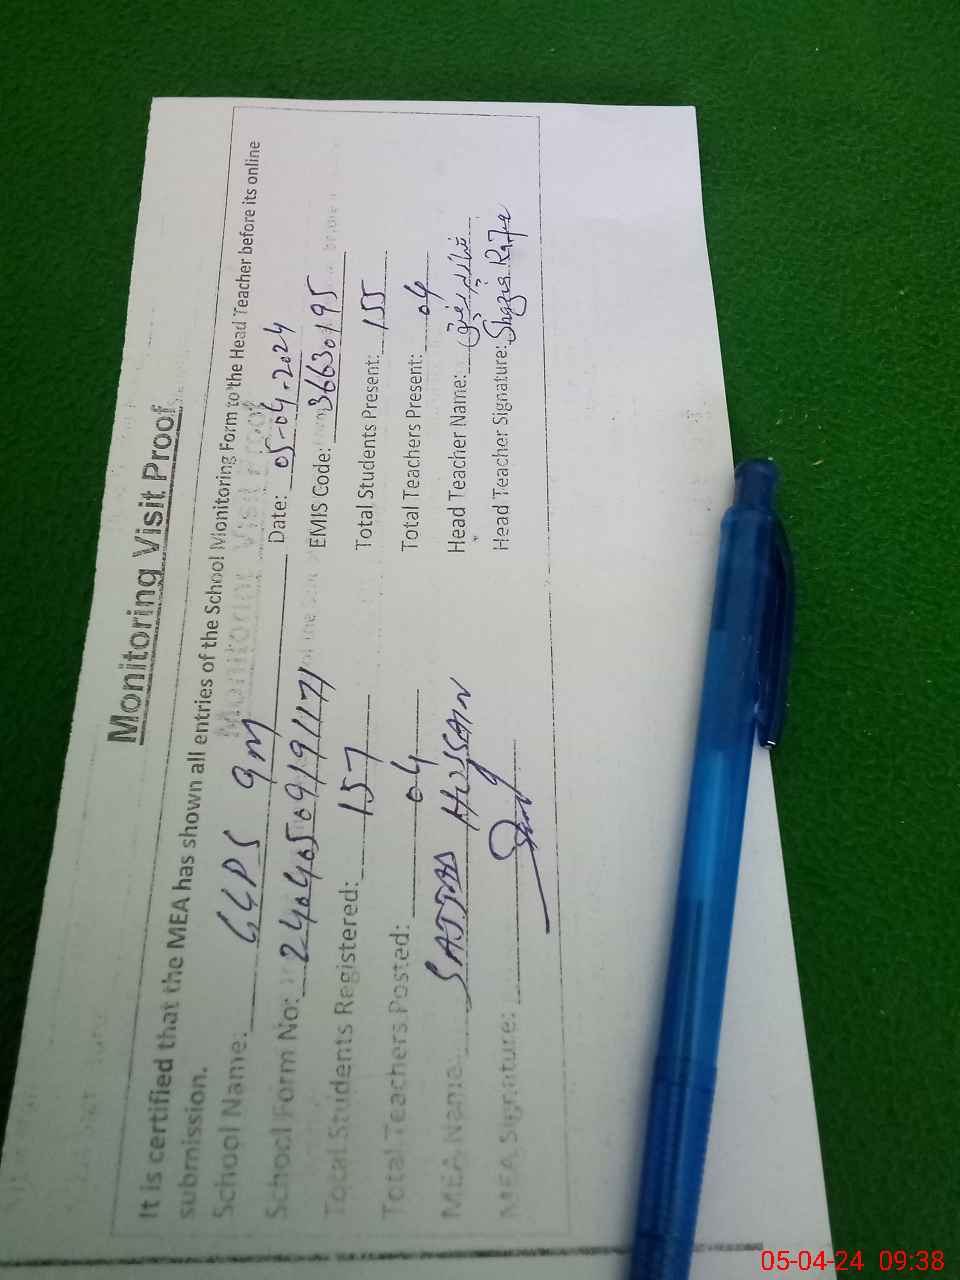 Monitoring Visit Proof
It is certified that the MEA has shown all entries of the School Monitoring Form to the Head Teacher before its online
submission.
School Name: GGPS 9M Date: 05-04-2024
School Form No: 24040509191171 EMIS Code: 36630195
Total Students Registered: 157 Total Students Present: 155
Total Teachers Posted: 04 Total Teachers Present: 04
MEA Name: SAJJAD HUSSAIN Head Teacher Name:
MEA Signature: Head Teacher Signature: Shazia
05-04-24 09:38